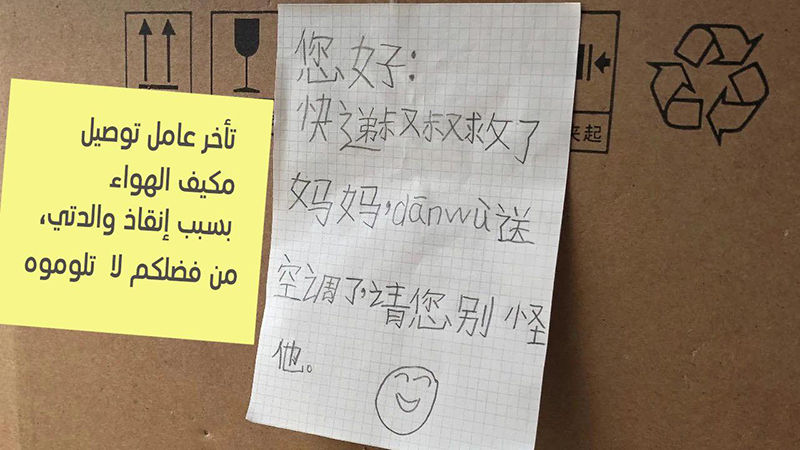 تأخر عامل توصيل
مكيف الهواء
بسبب إنقاذ والدتي،
من فضلكم لا تلوموه
您好：
快递叔叔救了
妈妈，dānwù送
空调了，请您别怪
他。
来起